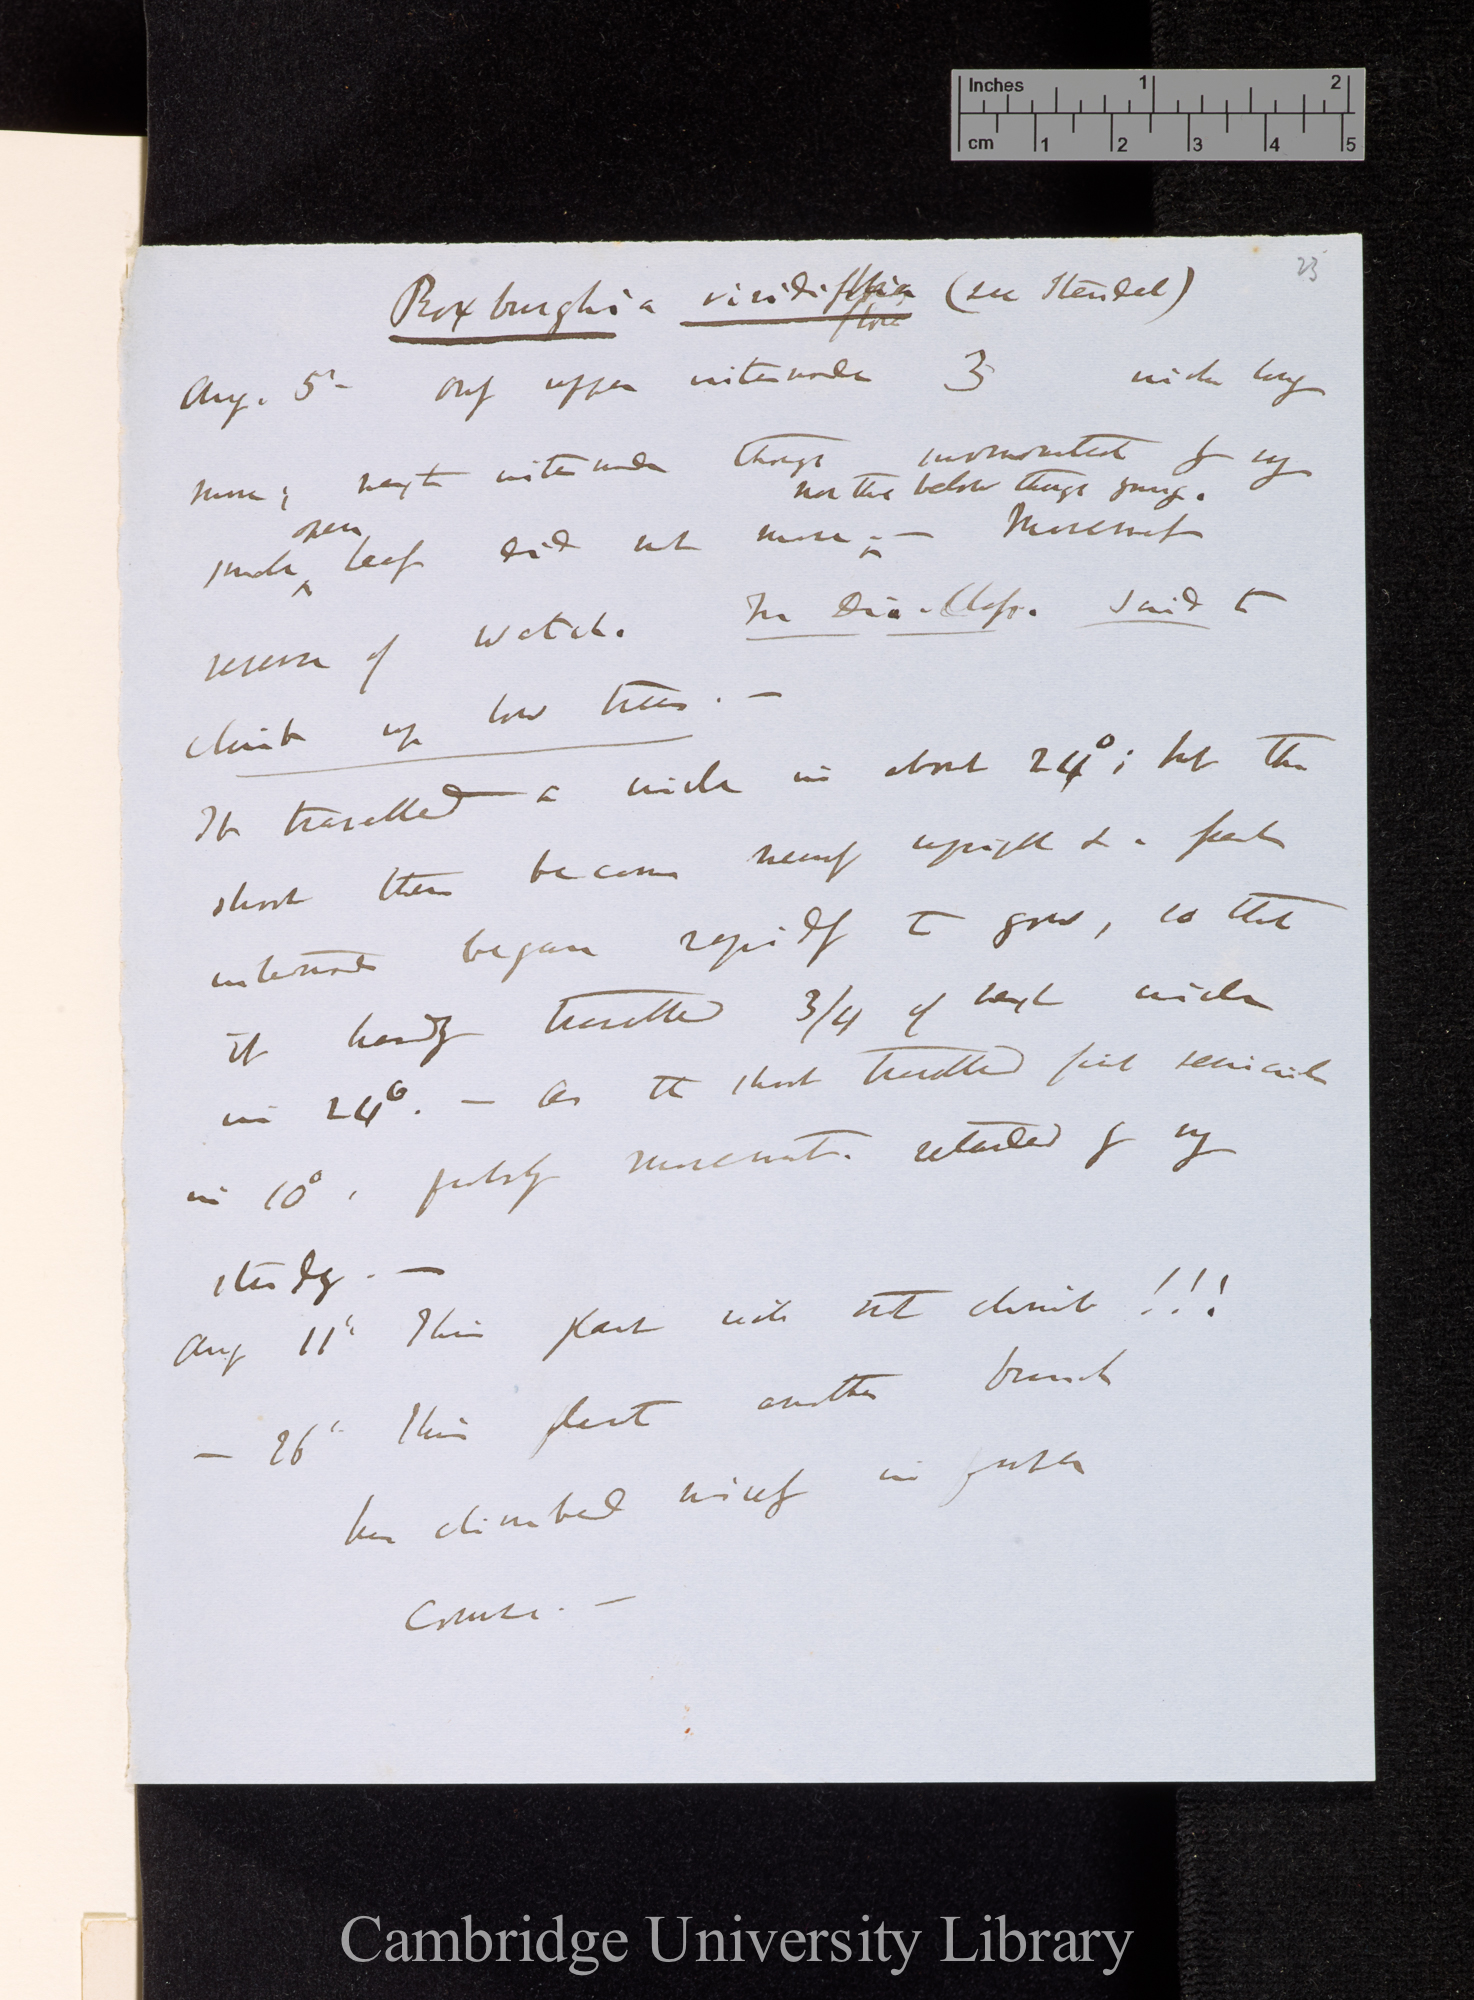 Inches 1 2
cm 1 2 3 4 5
23
Roxburghia viridiflora (see Steudel)
Aug. 5th only upper internode 3 inches long
move; next internode though surmounted by very
nor the below though young.
open
small leaf did not move; — Movement
reverse of watch. In Dic. Class. said to
climb up low trees. —
It travelled a circle in about 24°; but the
shoot then became nearly upright & a fresh
internode began rapidly to grow, so that
it hardly travelled 3/4 of next circle
in 24°. — As the shoot travelled first semicircle
in 10°, probably movement retarded by
study. —
Aug 11th This plant will not climb !!!
— 26th This plant another branch
has climbed nicely in proper
course. —
Cambridge University Library